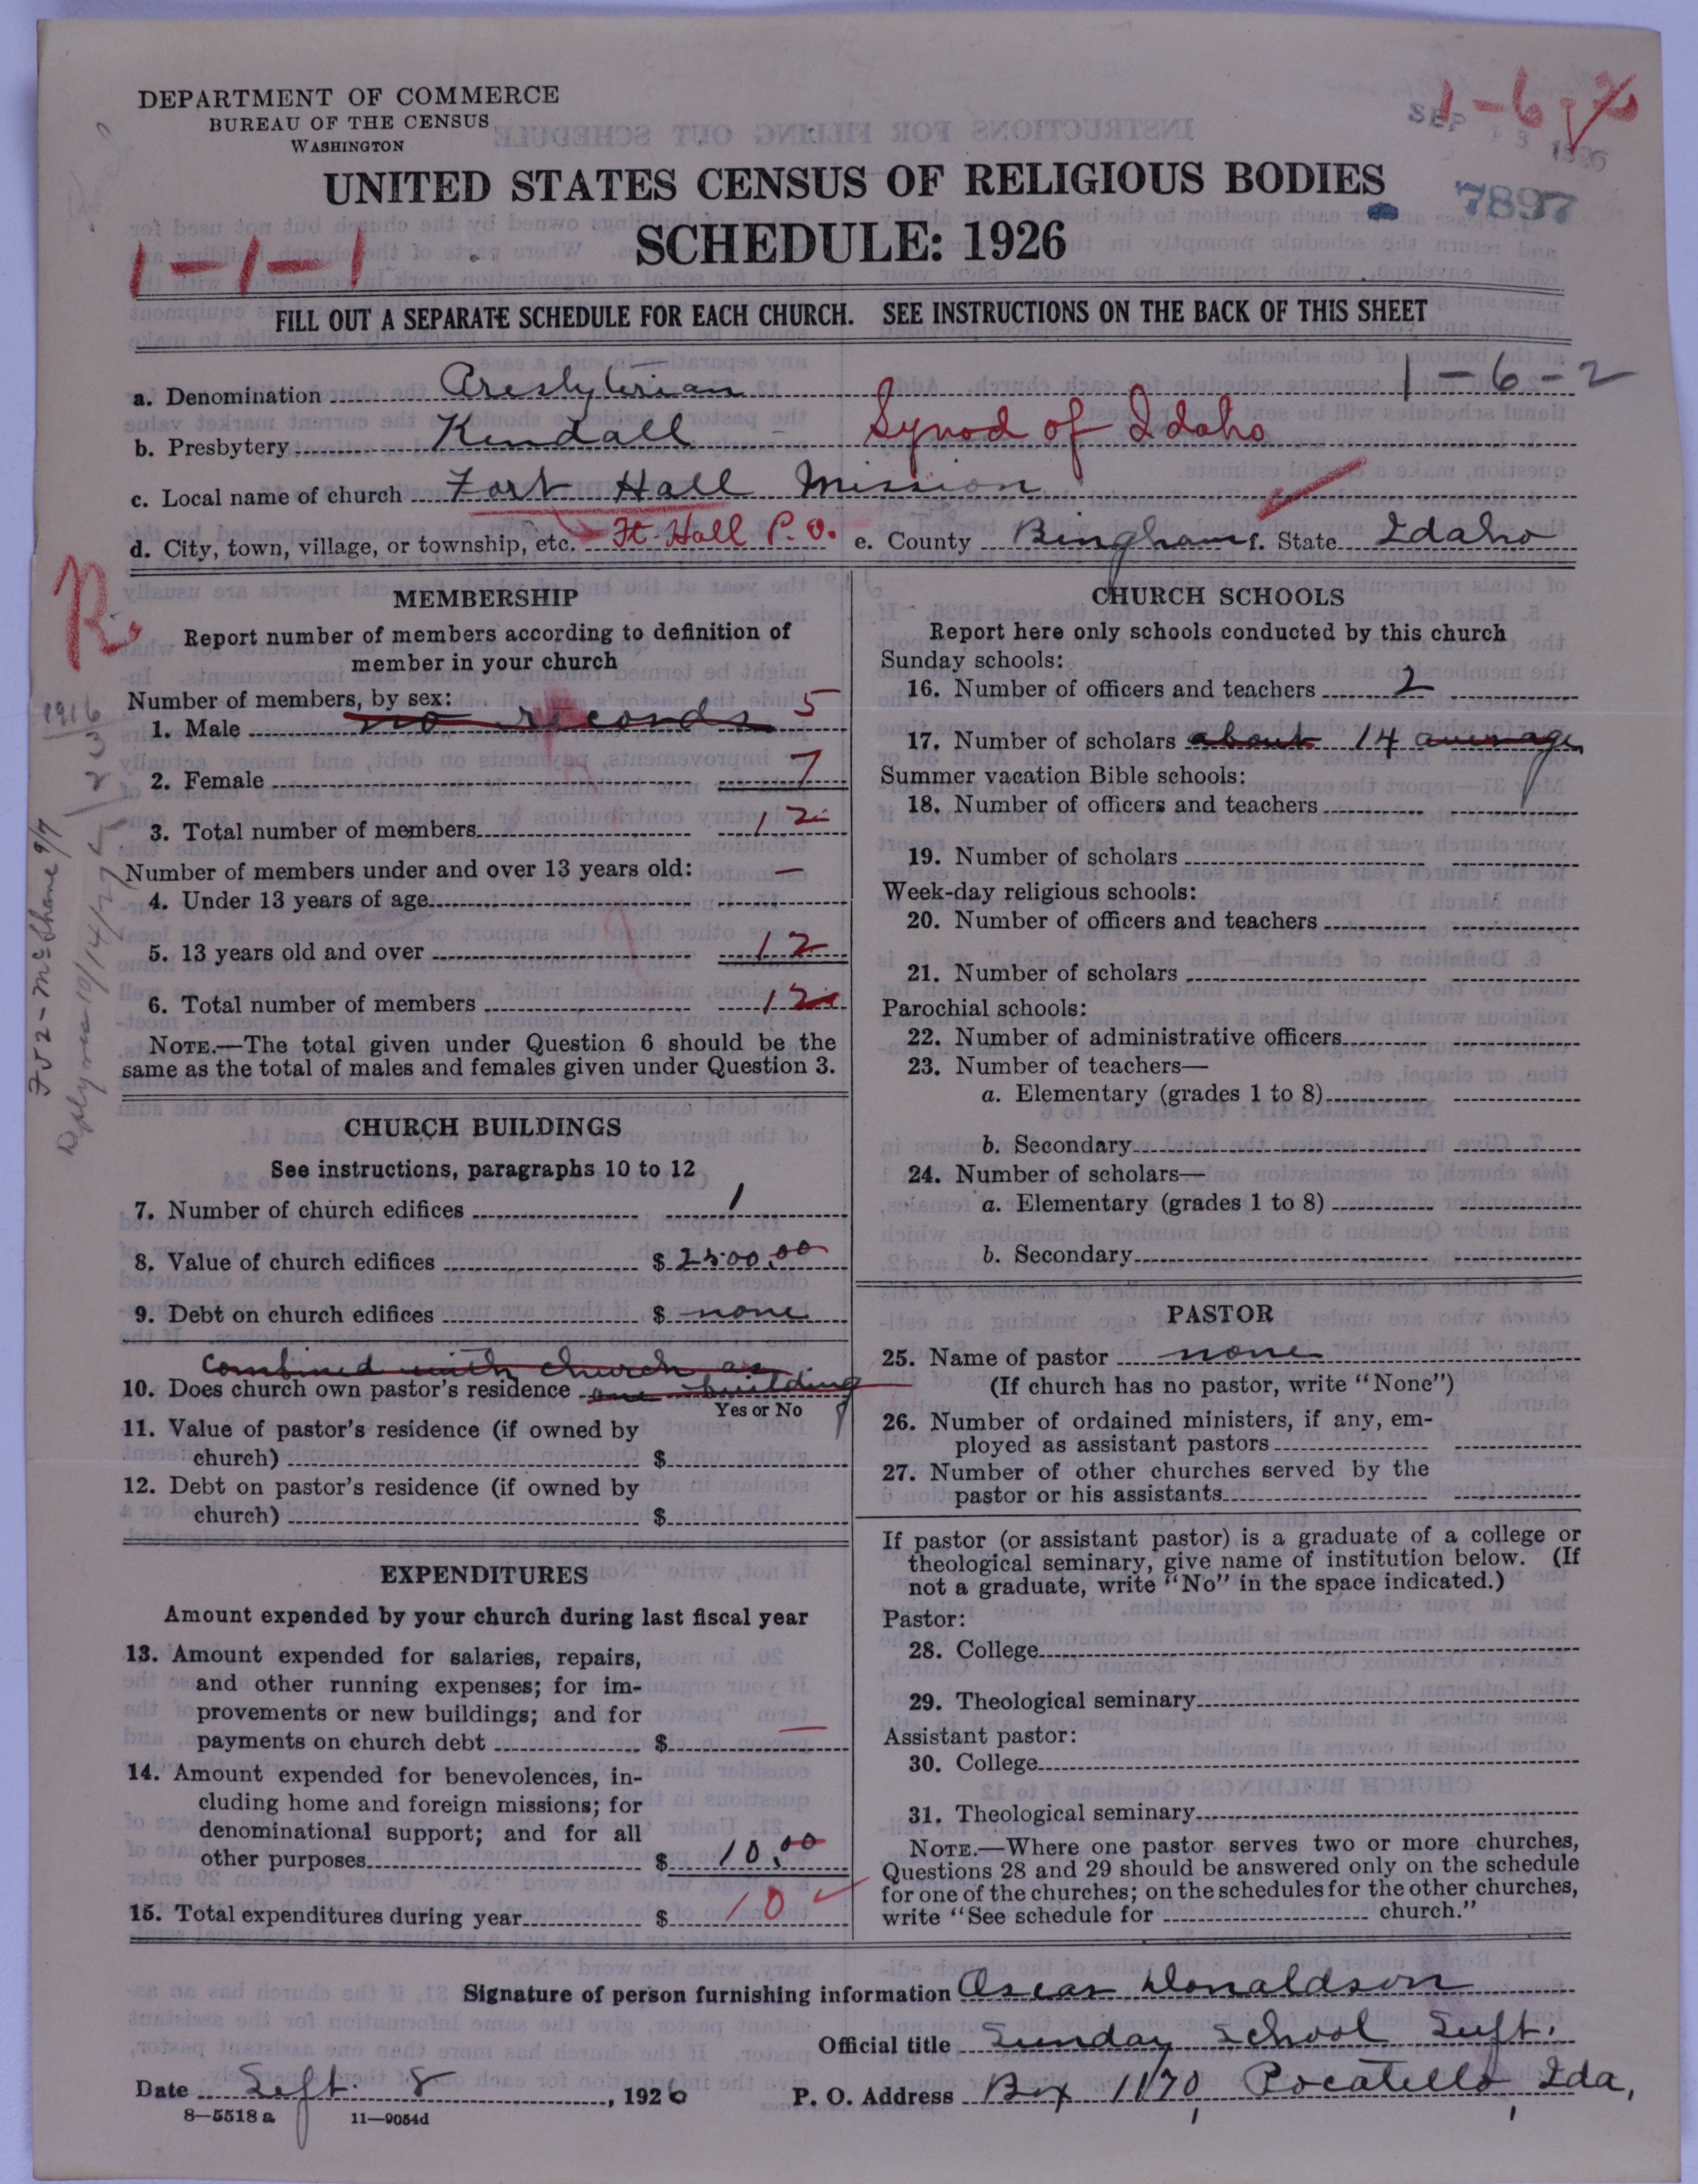 DEPARTMENT OF COMMERCE
BUREAU OF THE CENSUS
WASHINGTON
1-6
SEP 13 1926
7897
UNITED STATES CENSUS OF RELIGIOUS BODIES
SCHEDULE: 1926
1-1-1
FILL OUT A SEPARATE SCHEDULE FOR EACH CHURCH. SEE INSTRUCTIONS ON THE BACK OF THIS SHEET
a. Denomination Presbyterian 1-6-2
b. Presbytery Kendall Synod of Idaho
c. Local name of church Fort Hall Mission
d. City, town, village, or township, etc. Ft. Hall P.O. e. County Bingham f. State Idaho
R
MEMBERSHIP
Report number of members according to definition of
member in your church
Number of members, by sex:
1. Male no records 5
2. Female 7
3. Total number of members 12
Number of members under and over 13 years old:
4. Under 13 years of age —
5. 13 years old and over 12
6. Total number of members 12
NOTE.—The total given under Question 6 should be the
same as the total of males and females given under Question 3.
1916
CHURCH BUILDINGS
See instructions, paragraphs 10 to 12
7. Number of church edifices 1
8. Value of church edifices $ 2500.00
9. Debt on church edifices $ none
combined with church as
10. Does church own pastor's residence one building
Yes or No
11. Value of pastor's residence (if owned by
church) $
12. Debt on pastor's residence (if owned by
church) $
EXPENDITURES
Amount expended by your church during last fiscal year
13. Amount expended for salaries, repairs,
and other running expenses; for im-
provements or new buildings; and for
payments on church debt $ —
14. Amount expended for benevolences, in-
cluding home and foreign missions; for
denominational support; and for all
other purposes $ 10.00
15. Total expenditures during year $ 10
CHURCH SCHOOLS
Report here only schools conducted by this church
Sunday schools:
16. Number of officers and teachers 2
17. Number of scholars about 14 average
Summer vacation Bible schools:
18. Number of officers and teachers
19. Number of scholars
Week-day religious schools:
20. Number of officers and teachers
21. Number of scholars
Parochial schools:
22. Number of administrative officers
23. Number of teachers—
a. Elementary (grades 1 to 8)
b. Secondary
24. Number of scholars—
a. Elementary (grades 1 to 8)
b. Secondary
PASTOR
25. Name of pastor none
(If church has no pastor, write "None")
26. Number of ordained ministers, if any, em-
ployed as assistant pastors
27. Number of other churches served by the
pastor or his assistants
If pastor (or assistant pastor) is a graduate of a college or
theological seminary, give name of institution below. (If
not a graduate, write "No" in the space indicated.)
Pastor:
28. College
29. Theological seminary
Assistant pastor:
30. College
31. Theological seminary
NOTE.—Where one pastor serves two or more churches,
Questions 28 and 29 should be answered only on the schedule
for one of the churches; on the schedules for the other churches,
write "See schedule for church."
Signature of person furnishing information Oscar Donaldson
Official title Sunday School Supt.
Date Sept. 8, 1926 P. O. Address Box 1170, Pocatello, Ida.
8—5518a 11—9054d